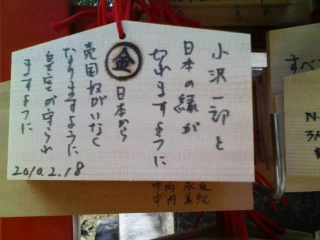 小沢一郎と
日本の縁が
切れますように
金
日本から
売国奴がいなく
なりますように
皇室が守られ
ますように
2010.2.18
すべ